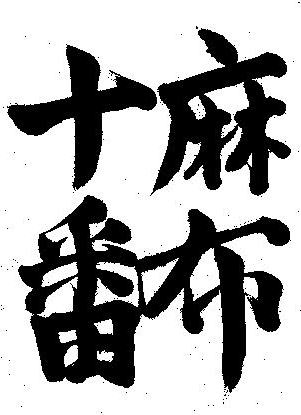 麻布
十番